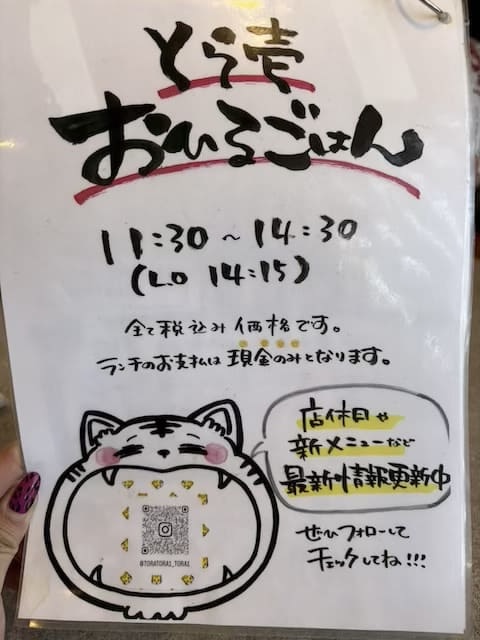 とら壱
おひるごはん
11:30～14:30
(L.O 14:15)
全て税込み価格です。
ランチのお支払は現金のみとなります。
店休日や
新メニューなど
最新情報更新中
ぜひフォローして
チェックしてね!!!
@TORATORA1_TORA1